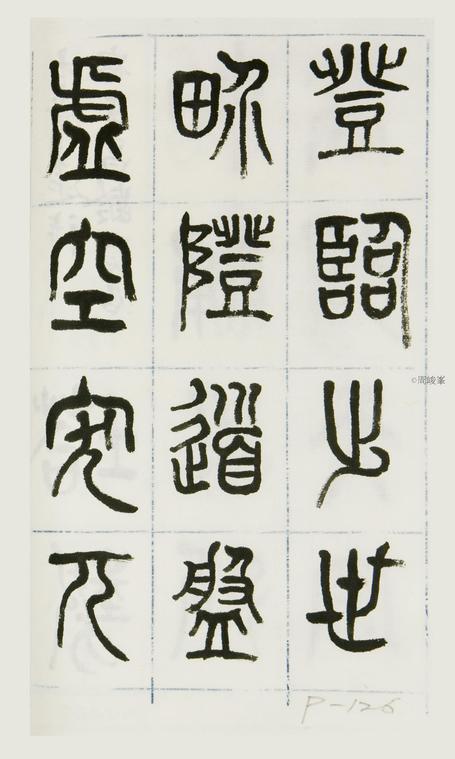 登臨出世
畍隥道盤
虛空突兀
©周峻峯
P-126